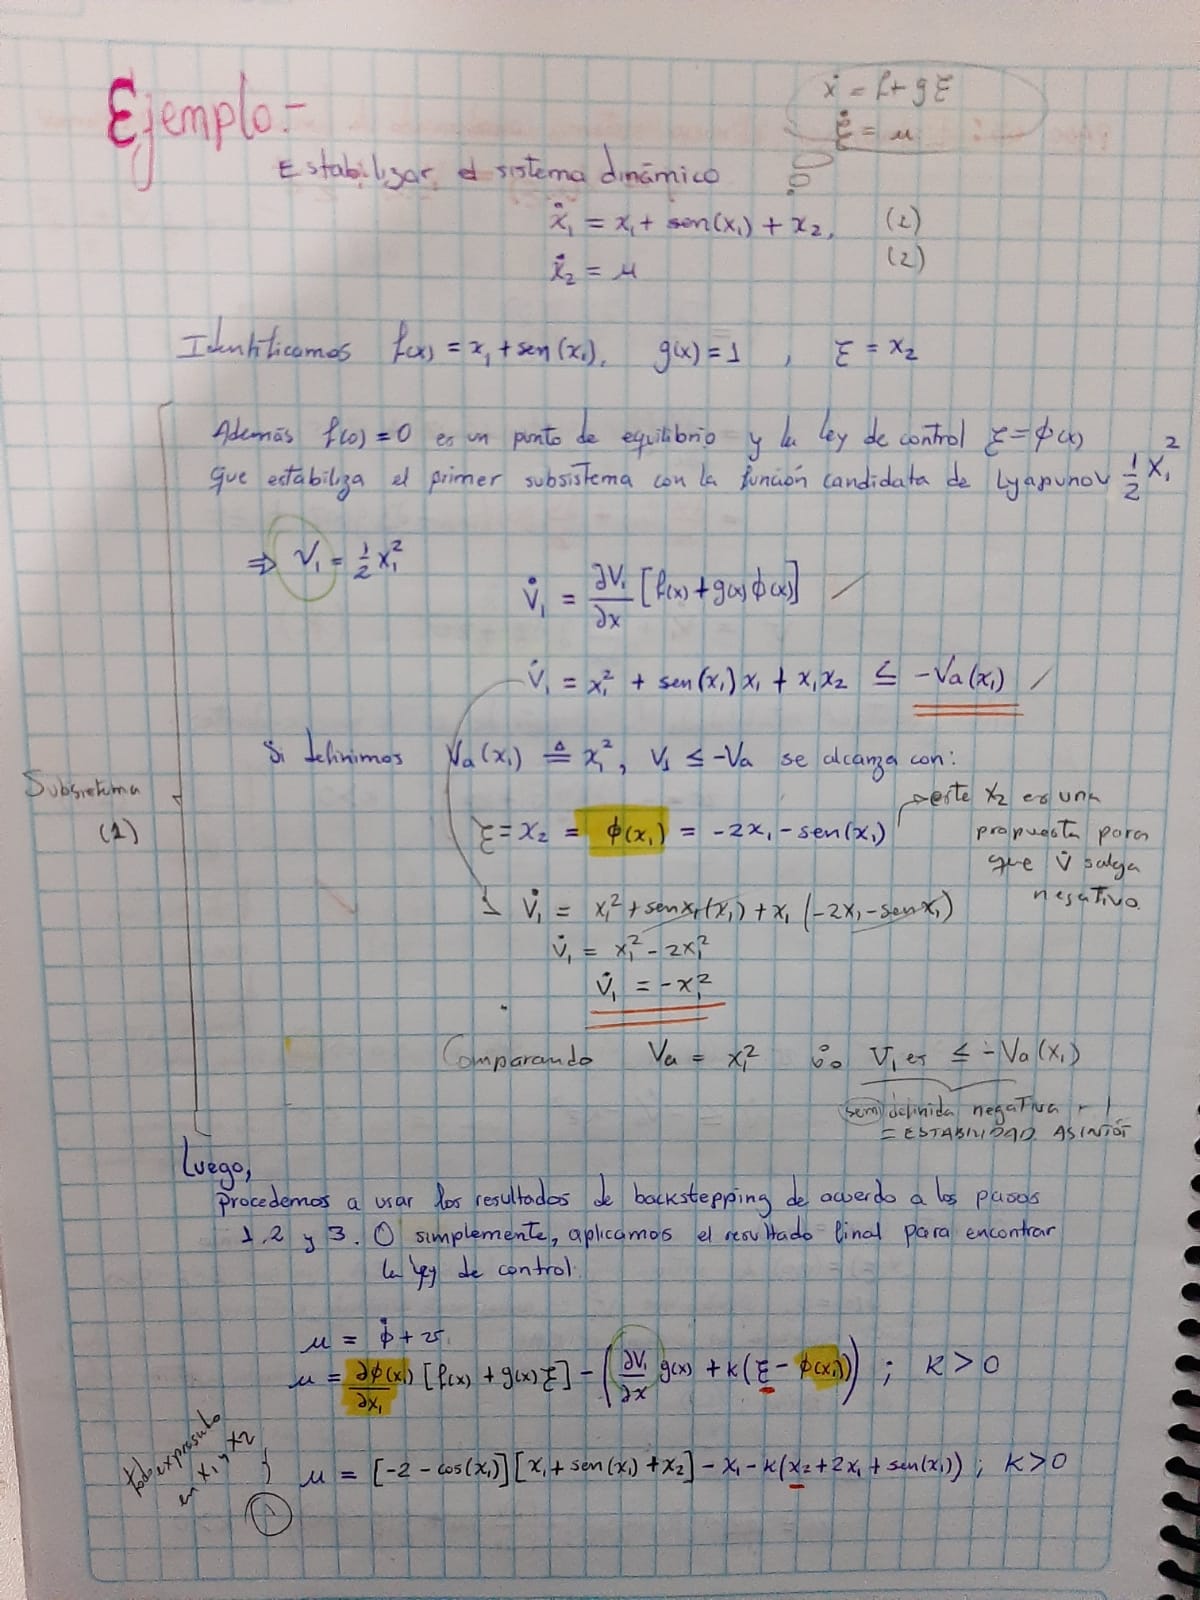 ẋ = f + gξ
ξ̇ = u
Ejemplo:-
Estabilizar el sistema dinámico
ẋ₁ = x₁ + sen(x₁) + x₂, (1)
ẋ₂ = u (2)
Identificamos f(x) = x₁ + sen(x₁), g(x) = 1 , ξ = x₂
Además f(0) = 0 es un punto de equilibrio y la ley de control ξ = ϕ(x)
que estabiliza el primer subsistema con la función candidata de Lyapunov ½ x₁²
⇒ V₁ = ½ x₁²
V̇₁ = ∂V₁/∂x [f(x) + g(x) ϕ(x)]
V̇₁ = x₁² + sen(x₁) x₁ + x₁x₂ ≤ -Va(x₁)
Si definimos Va(x₁) ≜ x₁², V₁ ≤ -Va se alcanza con:
Subsistema
(1)
ξ = x₂ = ϕ(x₁) = -2x₁ - sen(x₁)
este x₂ es una
propuesta para
que V̇ salga
negativo.
V̇₁ = x₁² + senx₁(x₁) + x₁ (-2x₁ - senx₁)
V̇₁ = x₁² - 2x₁²
V̇₁ = -x₁²
Comparando Va = x₁² ∴ V₁ es ≤ -Va(x₁)
sem definida negativa
= ESTABILIDAD ASINTÓT
Luego,
procedemos a usar los resultados de backstepping de acuerdo a los pasos
1, 2 y 3. O simplemente, aplicamos el resultado final para encontrar
la ley de control.
u = ϕ̇ + v
u = ∂ϕ(x₁)/∂x₁ [f(x) + g(x) ξ] - (∂V₁/∂x g(x) + k(ξ - ϕ(x₁))) ; k > 0
todo expresado
en x₁ y x₂
u = [-2 - cos(x₁)][x₁ + sen(x₁) + x₂] - x₁ - k(x₂ + 2x₁ + sen(x₁)) ; k > 0